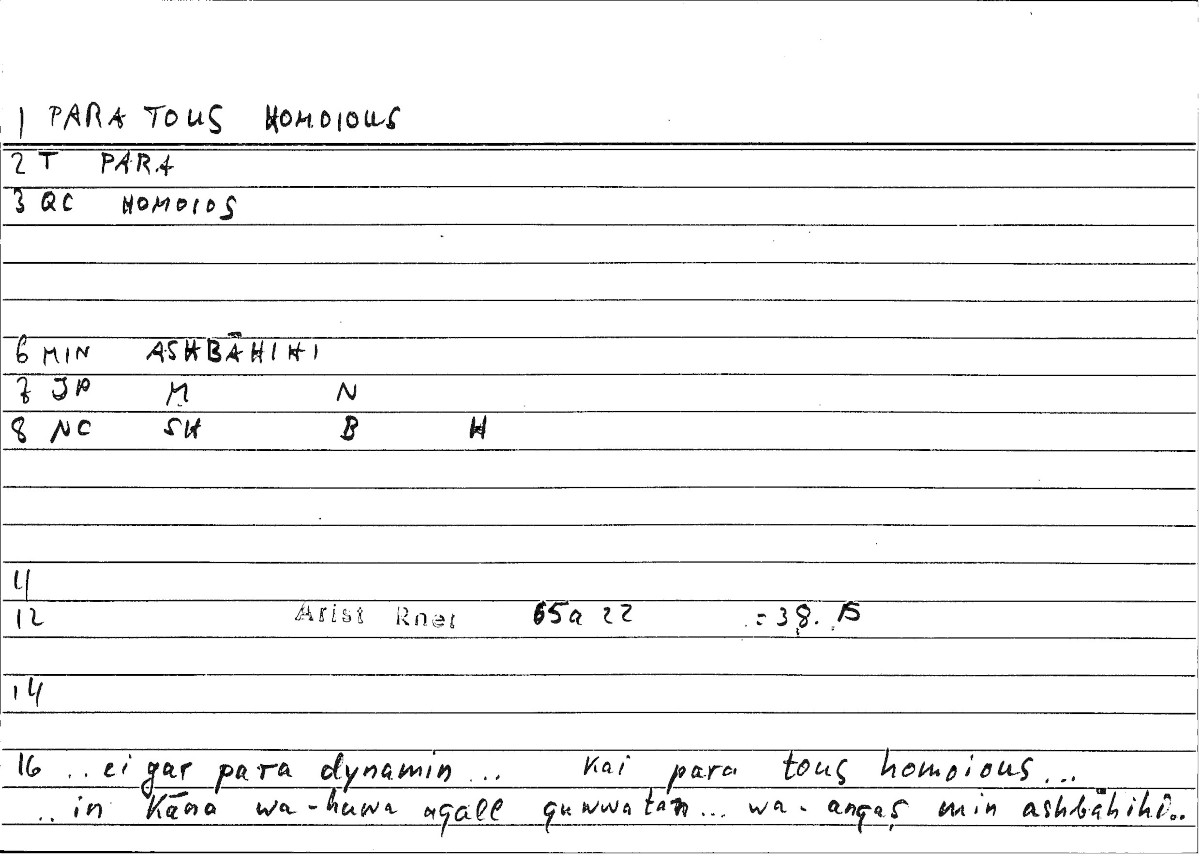 1 PARA TOUS HOMOIOUS
2 T PARA
3 QC HOMOIOS
6 MIN ASHBĀHIHI
7 JP M N
8 NC SH B H
4
12 Arist Rhet 65a 22 = 38. 15
14
16 ..ei gar para dynamin... kai para tous homoious...
..in kāna wa-huwa aqall quwwatan... wa-anqaṣ min ashbāhihi..